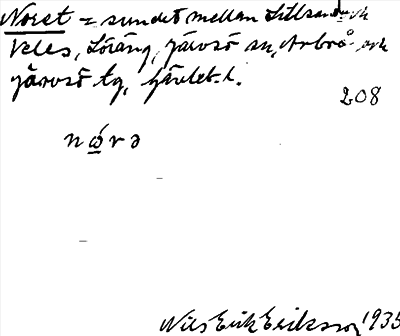 Noret = sundet mellan Lillsand och
Veles, Löräng, Järvsö sn, Arbrå och
Järvsö tg, Gävleb. l.
208
nǿrə
Nils Erik Eriksson 1935